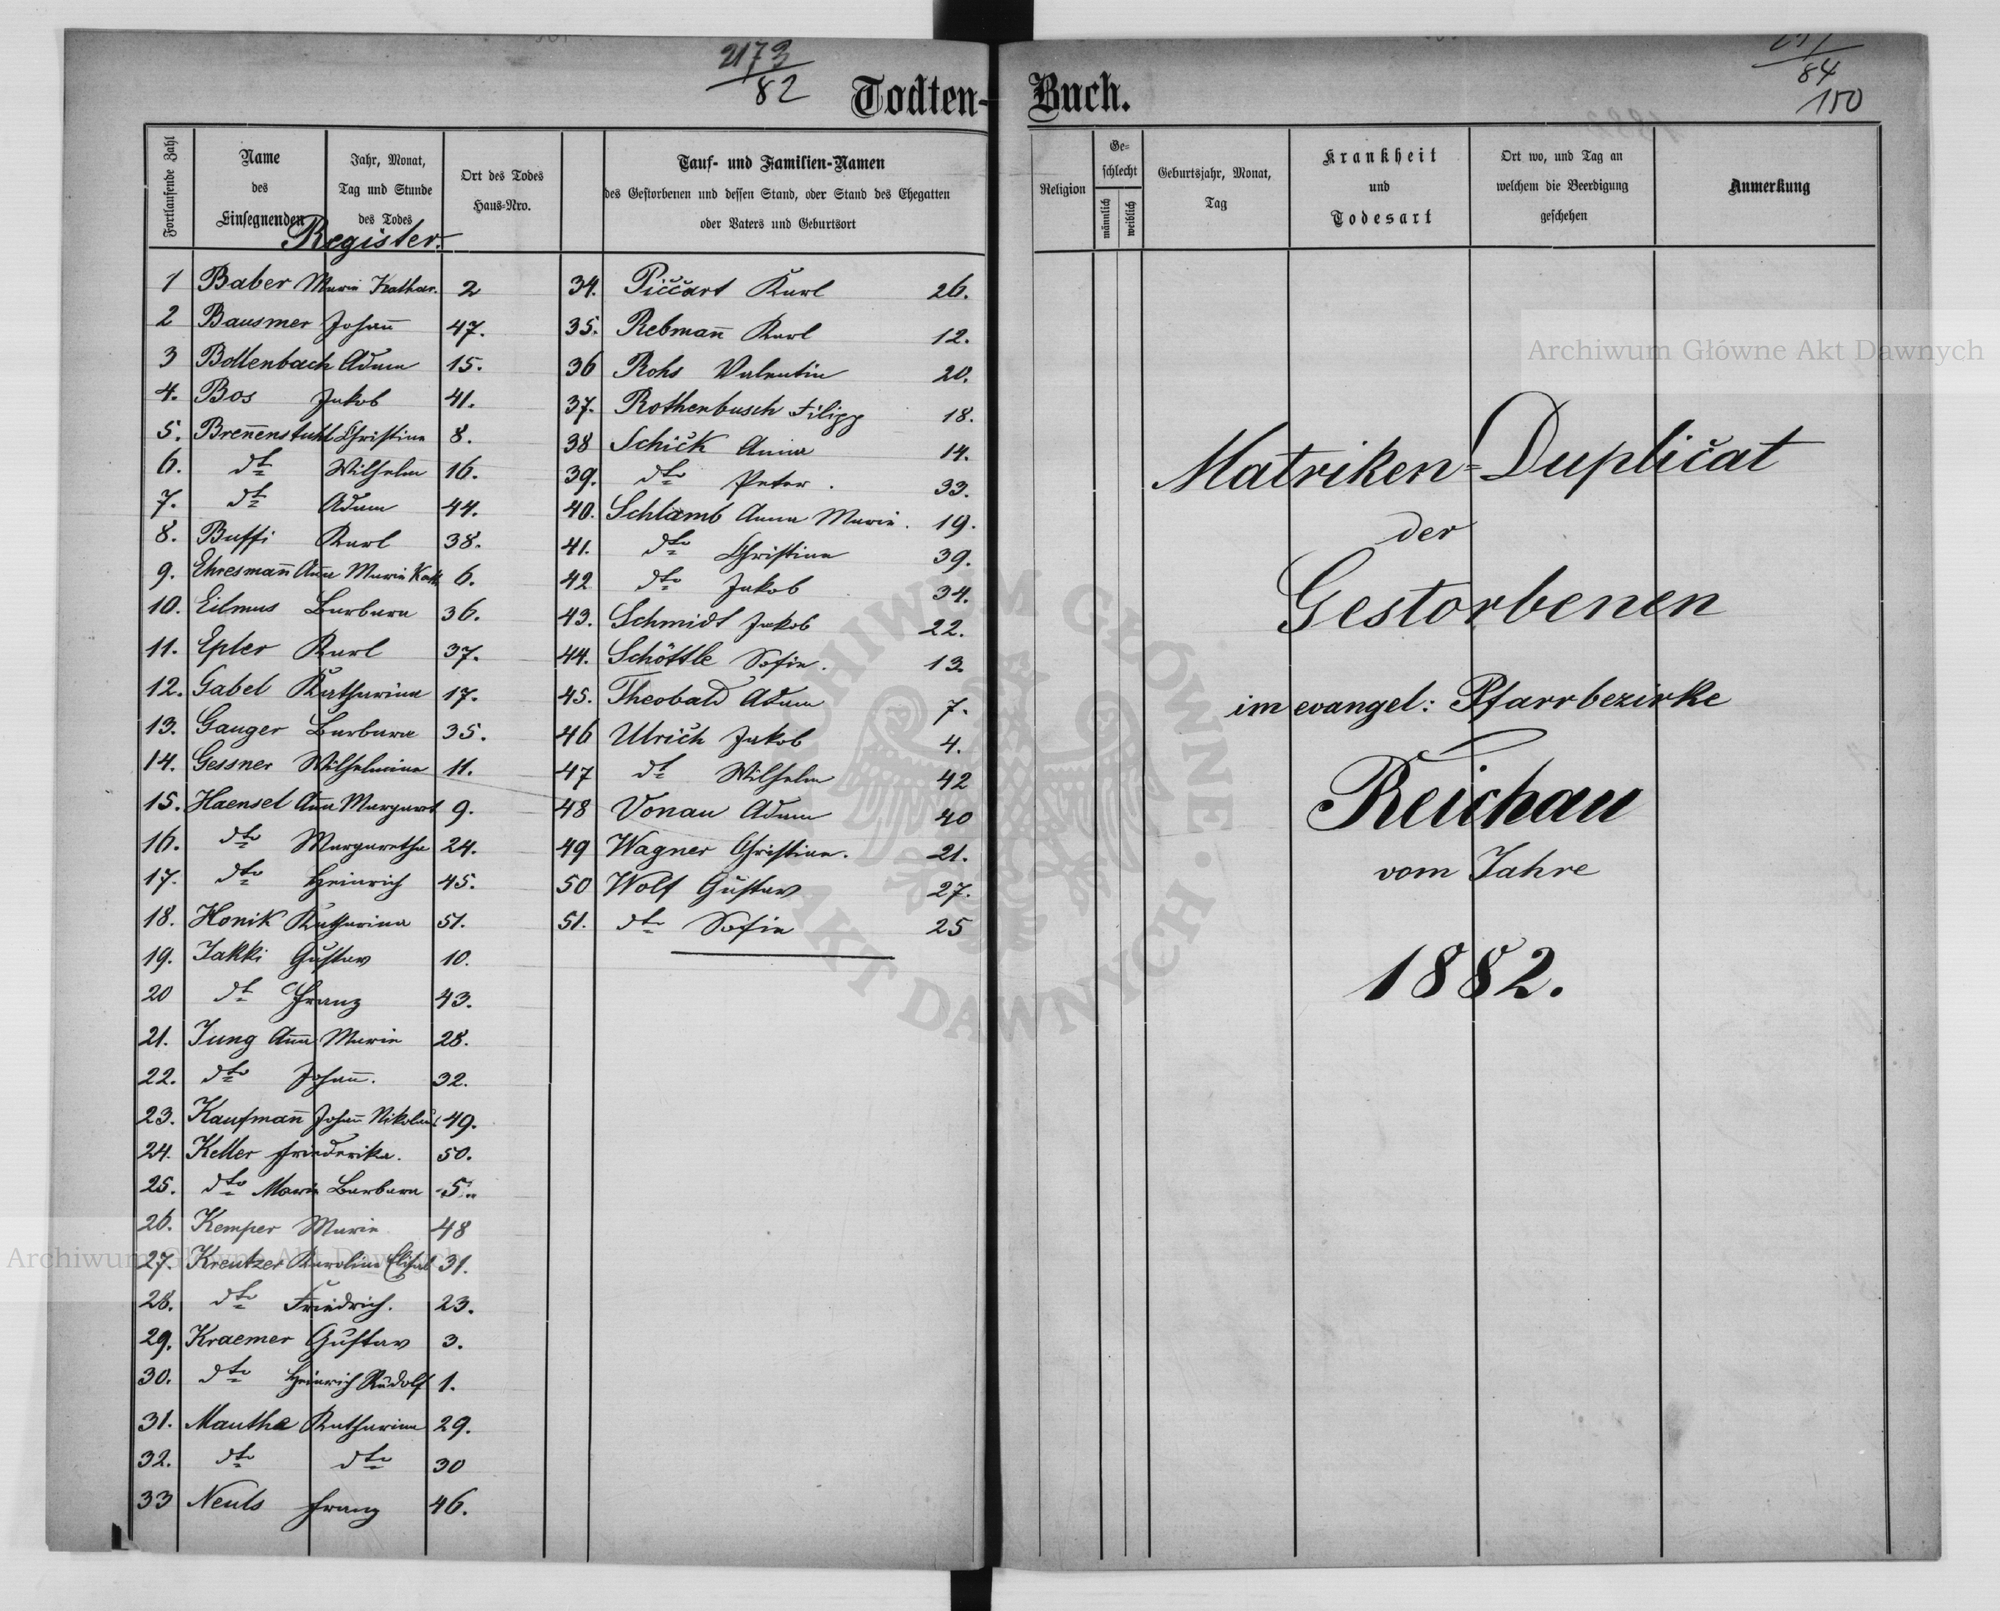 2173
82
Todten-
Fortlaufende Zahl
Name
des
Einsegnenden
Jahr, Monat,
Tag und Stunde
des Todes
Ort des Todes
Haus-Nro.
Tauf- und Familien-Namen
des Gestorbenen und dessen Stand, oder Stand des Ehegatten
oder Vaters und Geburtsort
Register.
1 Baber Marie Kathar. 2
2 Bausmer Johañ 47.
3 Bollenbach Adam 15.
4. Bos Jakob 41.
5. Breñenstuhl Christine 8.
6. dt Wilhelm 16.
7. dt Adam 44.
8. Buffi Karl 38.
9. Ehresmañ Aña Marie Kath. 6.
10. Eilmus Barbara 36.
11. Epler Karl 37.
12. Gabel Katharina 17.
13. Gauger Barbara 35.
14. Gessner Wilhelmine 11.
15. Haensel Aña Margaret 9.
16. dto Margaretha 24.
17. dto Heinrich 45.
18. Honik Katharina 51.
19. Jakki Gustav 10.
20 dt Franz 43.
21. Jung Aña Marie 28.
22. dto Johañ. 32.
23. Kaufmañ Johañ Nikolaus 49.
24. Keller Friederika. 50.
25. dto Marie Barbara 5.
26. Kemper Marie 48
27. Kreutzer Karoline Elisab. 31.
28. dto Friedrich. 23.
29. Kraemer Gustav 3.
30. dto Heinrich Rudolf 1.
31. Mauthe Katharina 29.
32. dto dto 30
33 Neuls Franz 46.
34. Piccart Karl 26.
35. Rebmañ Karl 12.
36 Rohs Valentin 20.
37. Rothenbusch Filipp 18.
38 Schick Anna 14.
39. dto Peter. 33.
40. Schlamb Anna Marie. 19.
41. dto Christine 39.
42 dto Jakob 34.
43. Schmidt Jakob 22.
44. Schöttle Sofie. 13.
45. Theobald Adam 7.
46 Ulrich Jakob 4.
47 dt Wilhelm 42
48 Vonau Adam 40
49 Wagner Christian. 21.
50 Wolf Gustav 27.
51. dto Sofie 25
Buch.
84
150
Religion
Ge-
schlecht
männlich
weiblich
Geburtsjahr, Monat,
Tag
Krankheit
und
Todesart
Ort wo, und Tag an
welchem die Beerdigung
geschehen
Anmerkung
Matriken-Duplicat
der
Gestorbenen
im evangel: Pfarrbezirke
Reichau
vom Jahre
1882.
Archiwum Główne Akt Dawnych
Archiwum Główne Akt Dawnych
ARCHIWUM GŁÓWNE · AKT DAWNYCH